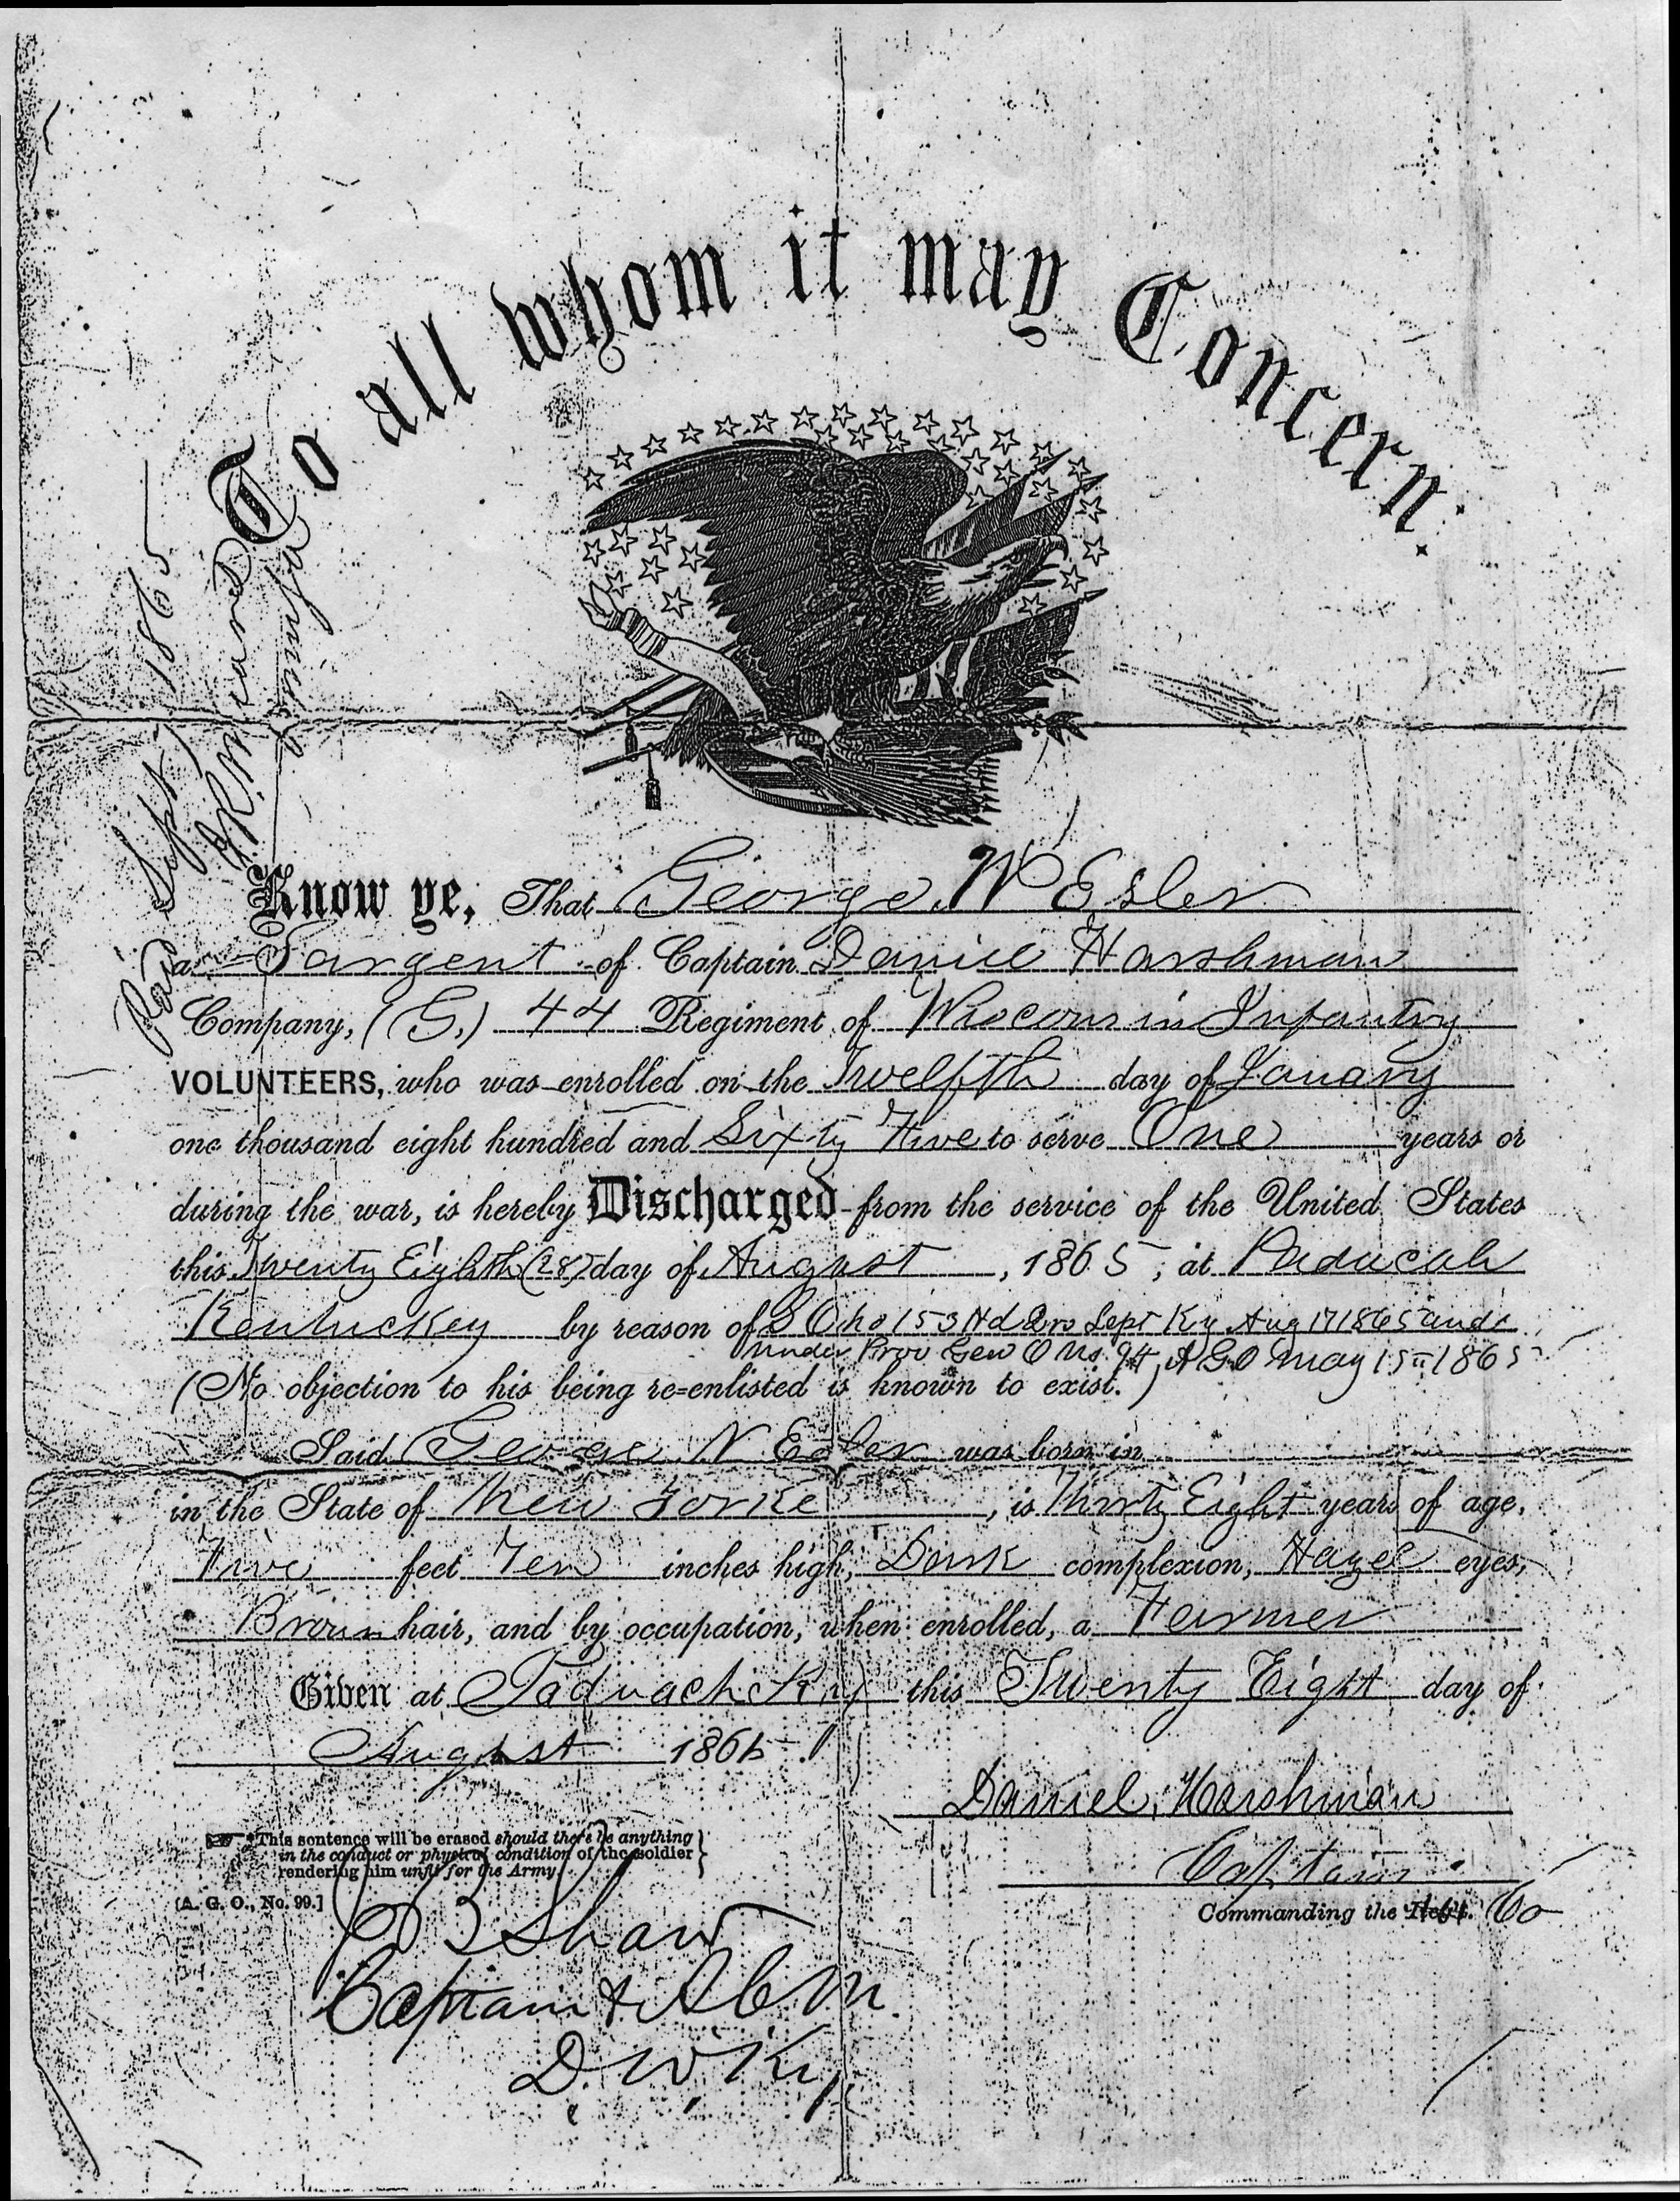 To all whom it may Concern.
Paid Sept 1865
Paymaster
Know ye, That George W Esler
a Sargent of Captain Daniel Harshman
Company, (G.) 44 Regiment of Wisconsin Infantry
VOLUNTEERS, who was enrolled on the Twelfth day of January
one thousand eight hundred and Sixty Five to serve One years or
during the war, is hereby Discharged from the service of the United States
this Twenty Eighth (28) day of August, 1865, at Paducah
Kentuckey by reason of S O No 153 Hd Qrs Dept Ky Aug 17 1865 and
under Prov Gen O No. 94, A G O May 15" 1865
(No objection to his being re-enlisted is known to exist.)
Said George W Esler was born in
in the State of New Yorke, is Thirty Eight years of age,
Five feet Ten inches high, Dark complexion, Hazel eyes,
Brown hair, and by occupation, when enrolled, a Farmer
Given at Paduach Ky this Twenty Eight day of
August 1865
Daniel Harshman
Captain
Commanding the Reg't. Co
*This sentence will be erased should there be anything
in the conduct or physical condition of the soldier
rendering him unfit for the Army.
[A. G. O., No. 99.]
Shaw
Captain & A C M
D. W. Ky.